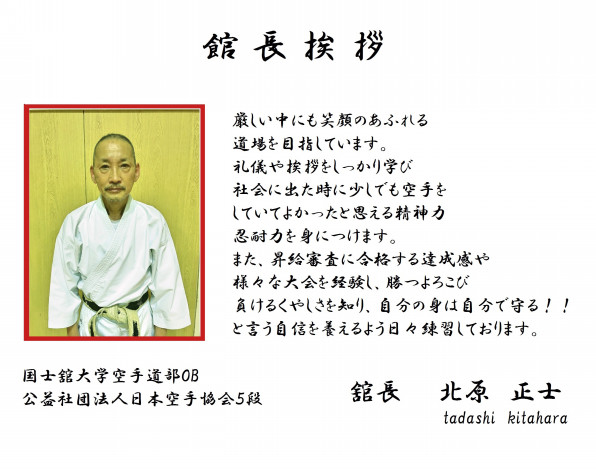 館長挨拶
厳しい中にも笑顔のあふれる
道場を目指しています。
礼儀や挨拶をしっかり学び
社会に出た時に少しでも空手を
していてよかったと思える精神力
忍耐力を身につけます。
また、昇給審査に合格する達成感や
様々な大会を経験し、勝つよろこび
負けるくやしさを知り、自分の身は自分で守る！！
と言う自信を養えるよう日々練習しております。
国士舘大学空手道部OB
公益社団法人日本空手協会5段
舘長 北原 正士
tadashi kitahara